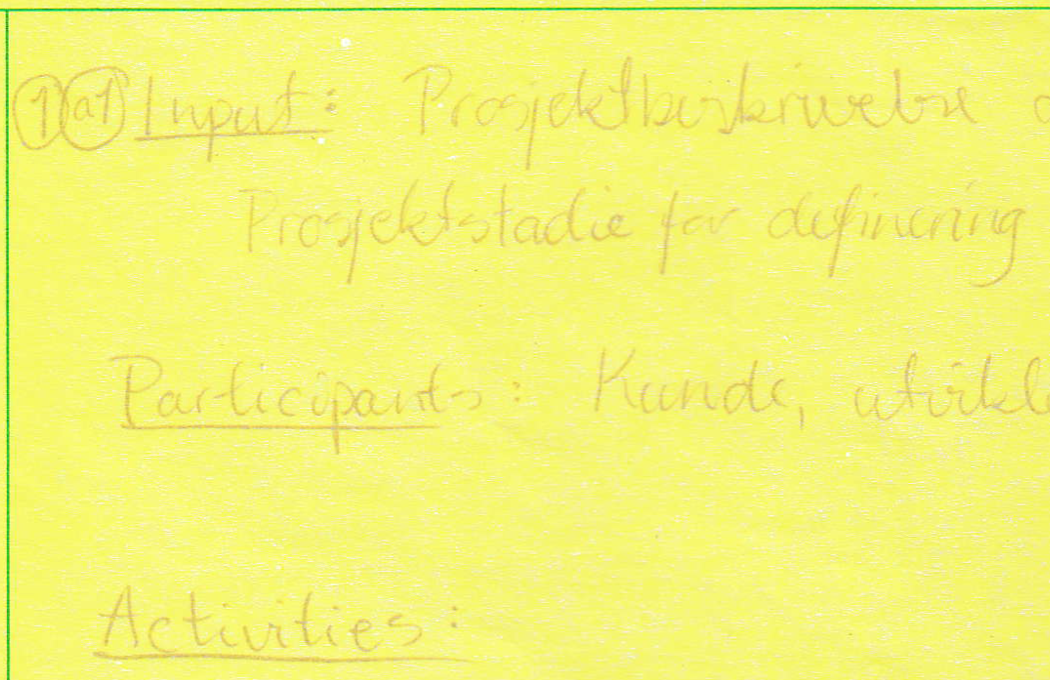 1 a1 Input: Prosjektbeskrivelse
Prosjektstadie for definering
Participants: Kunde,
Activities: